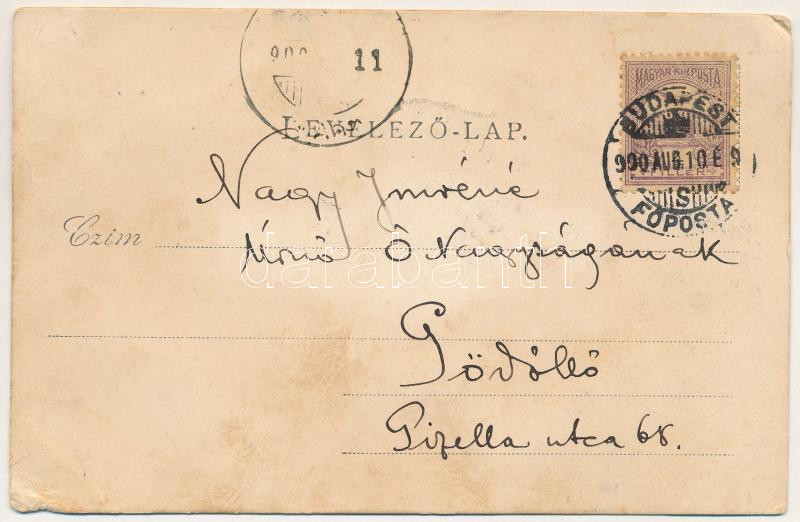 900 11
MAGYAR KIR. POSTA
BUDAPEST
900 AUG. 10 E 9
FŐPOSTA
LEVELEZŐ-LAP.
Nagy Imréné
Czim Úrnő Ő Nagyságának
darabanth
Gödöllő
Gizella utca 68.